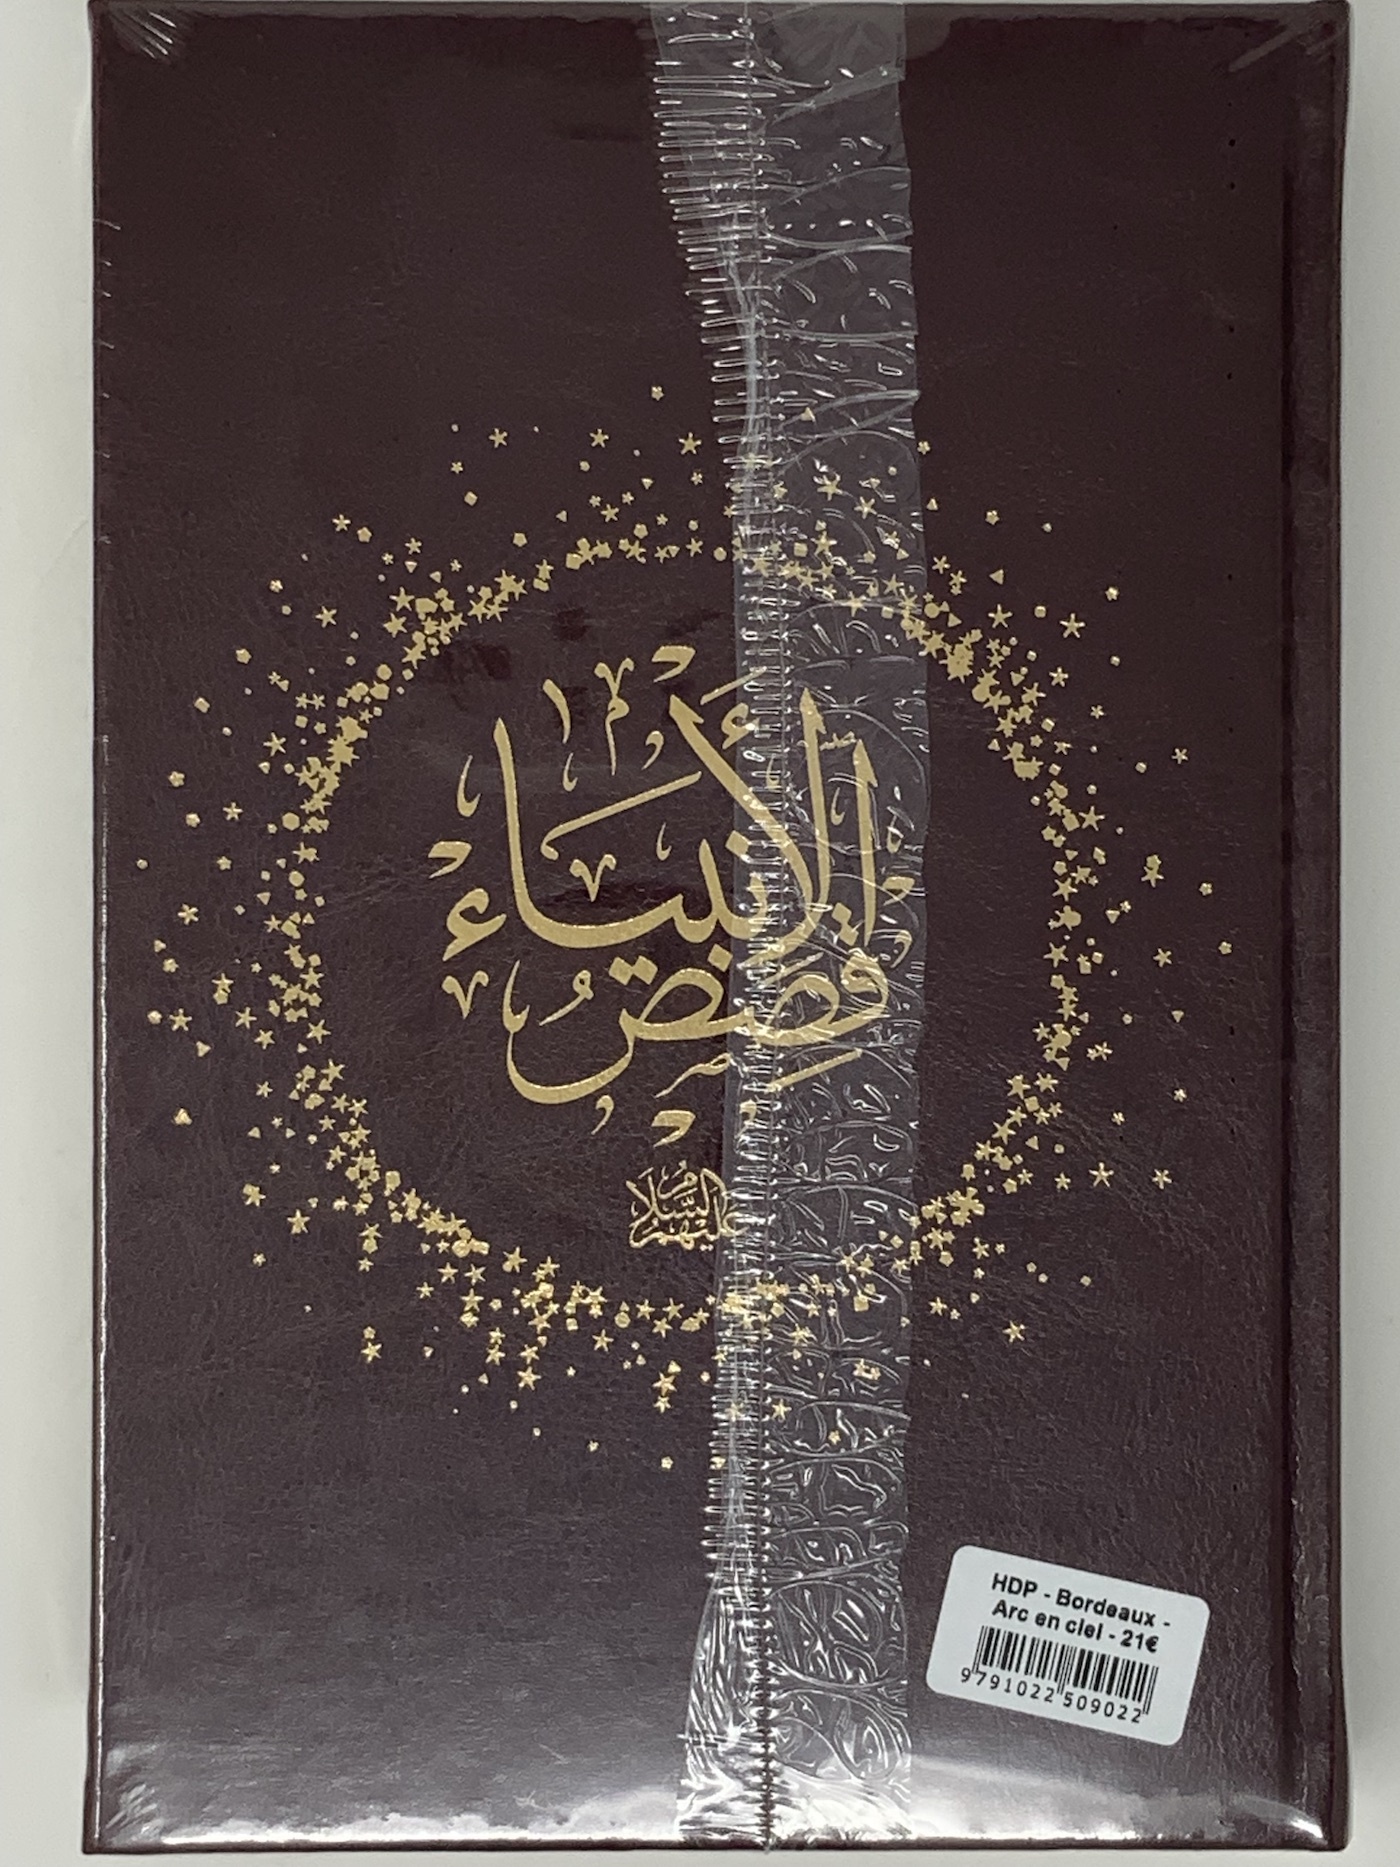 قَصَصُ الأَنْبِيَاءِ
عليهم السلام
HDP - Bordeaux -
Arc en ciel - 21€
9791022509022